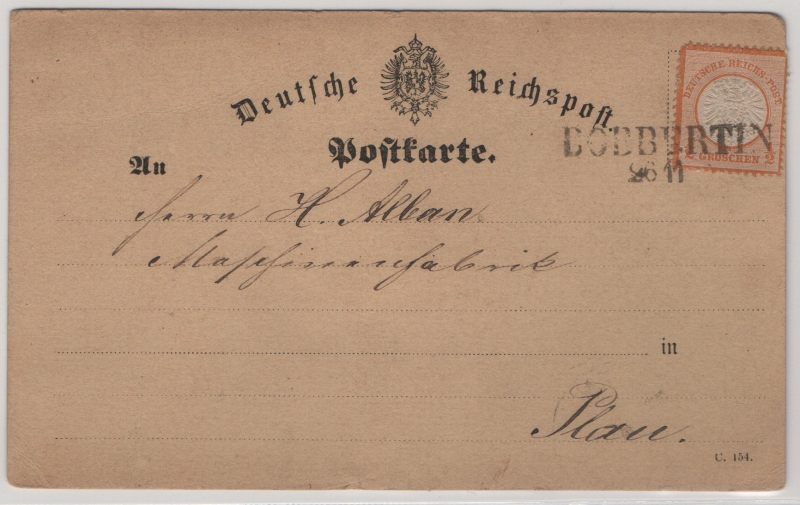 Deutsche Reichspost
Postkarte.
DEUTSCHE REICHS-POST
GROSCHEN 2
DOBBERTIN
26 11
An
Herrn H. Alban.
Maschinenfabrik
in
Plau.
C. 154.